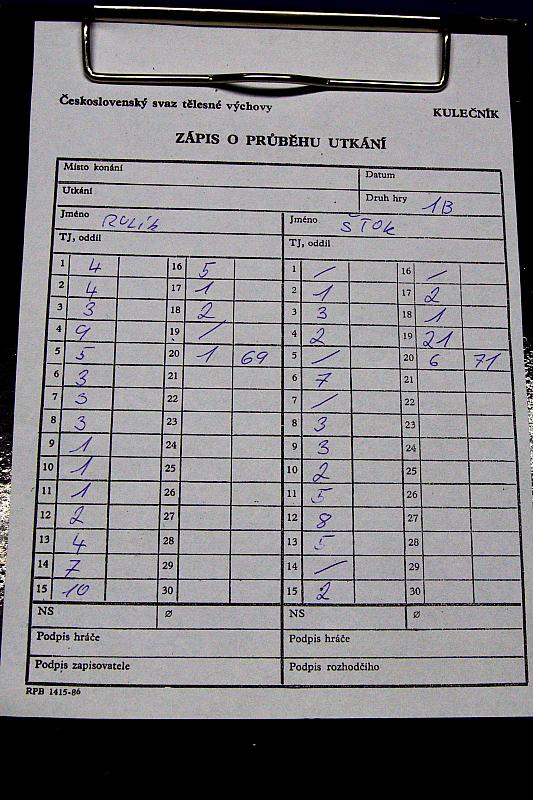 Československý svaz tělesné výchovy
KULEČNÍK
ZÁPIS O PRŮBĚHU UTKÁNÍ
Místo konání Datum
Utkání Druh hry 1B
Jméno RULÍK Jméno ŠTOK
TJ, oddíl TJ, oddíl
1 4 16 5 1 / 16 /
2 4 17 1 2 1 17 2
3 3 18 2 3 3 18 1
4 9 19 / 4 2 19 21
5 5 20 1 69 5 / 20 6 71
6 3 21 6 7 21
7 3 22 7 / 22
8 3 23 8 3 23
9 1 24 9 3 24
10 1 25 10 2 25
11 1 26 11 5 26
12 2 27 12 8 27
13 4 28 13 5 28
14 7 29 14 / 29
15 10 30 15 2 30
NS ø NS ø
Podpis hráče Podpis hráče
Podpis zapisovatele Podpis rozhodčího
RPB 1415-86